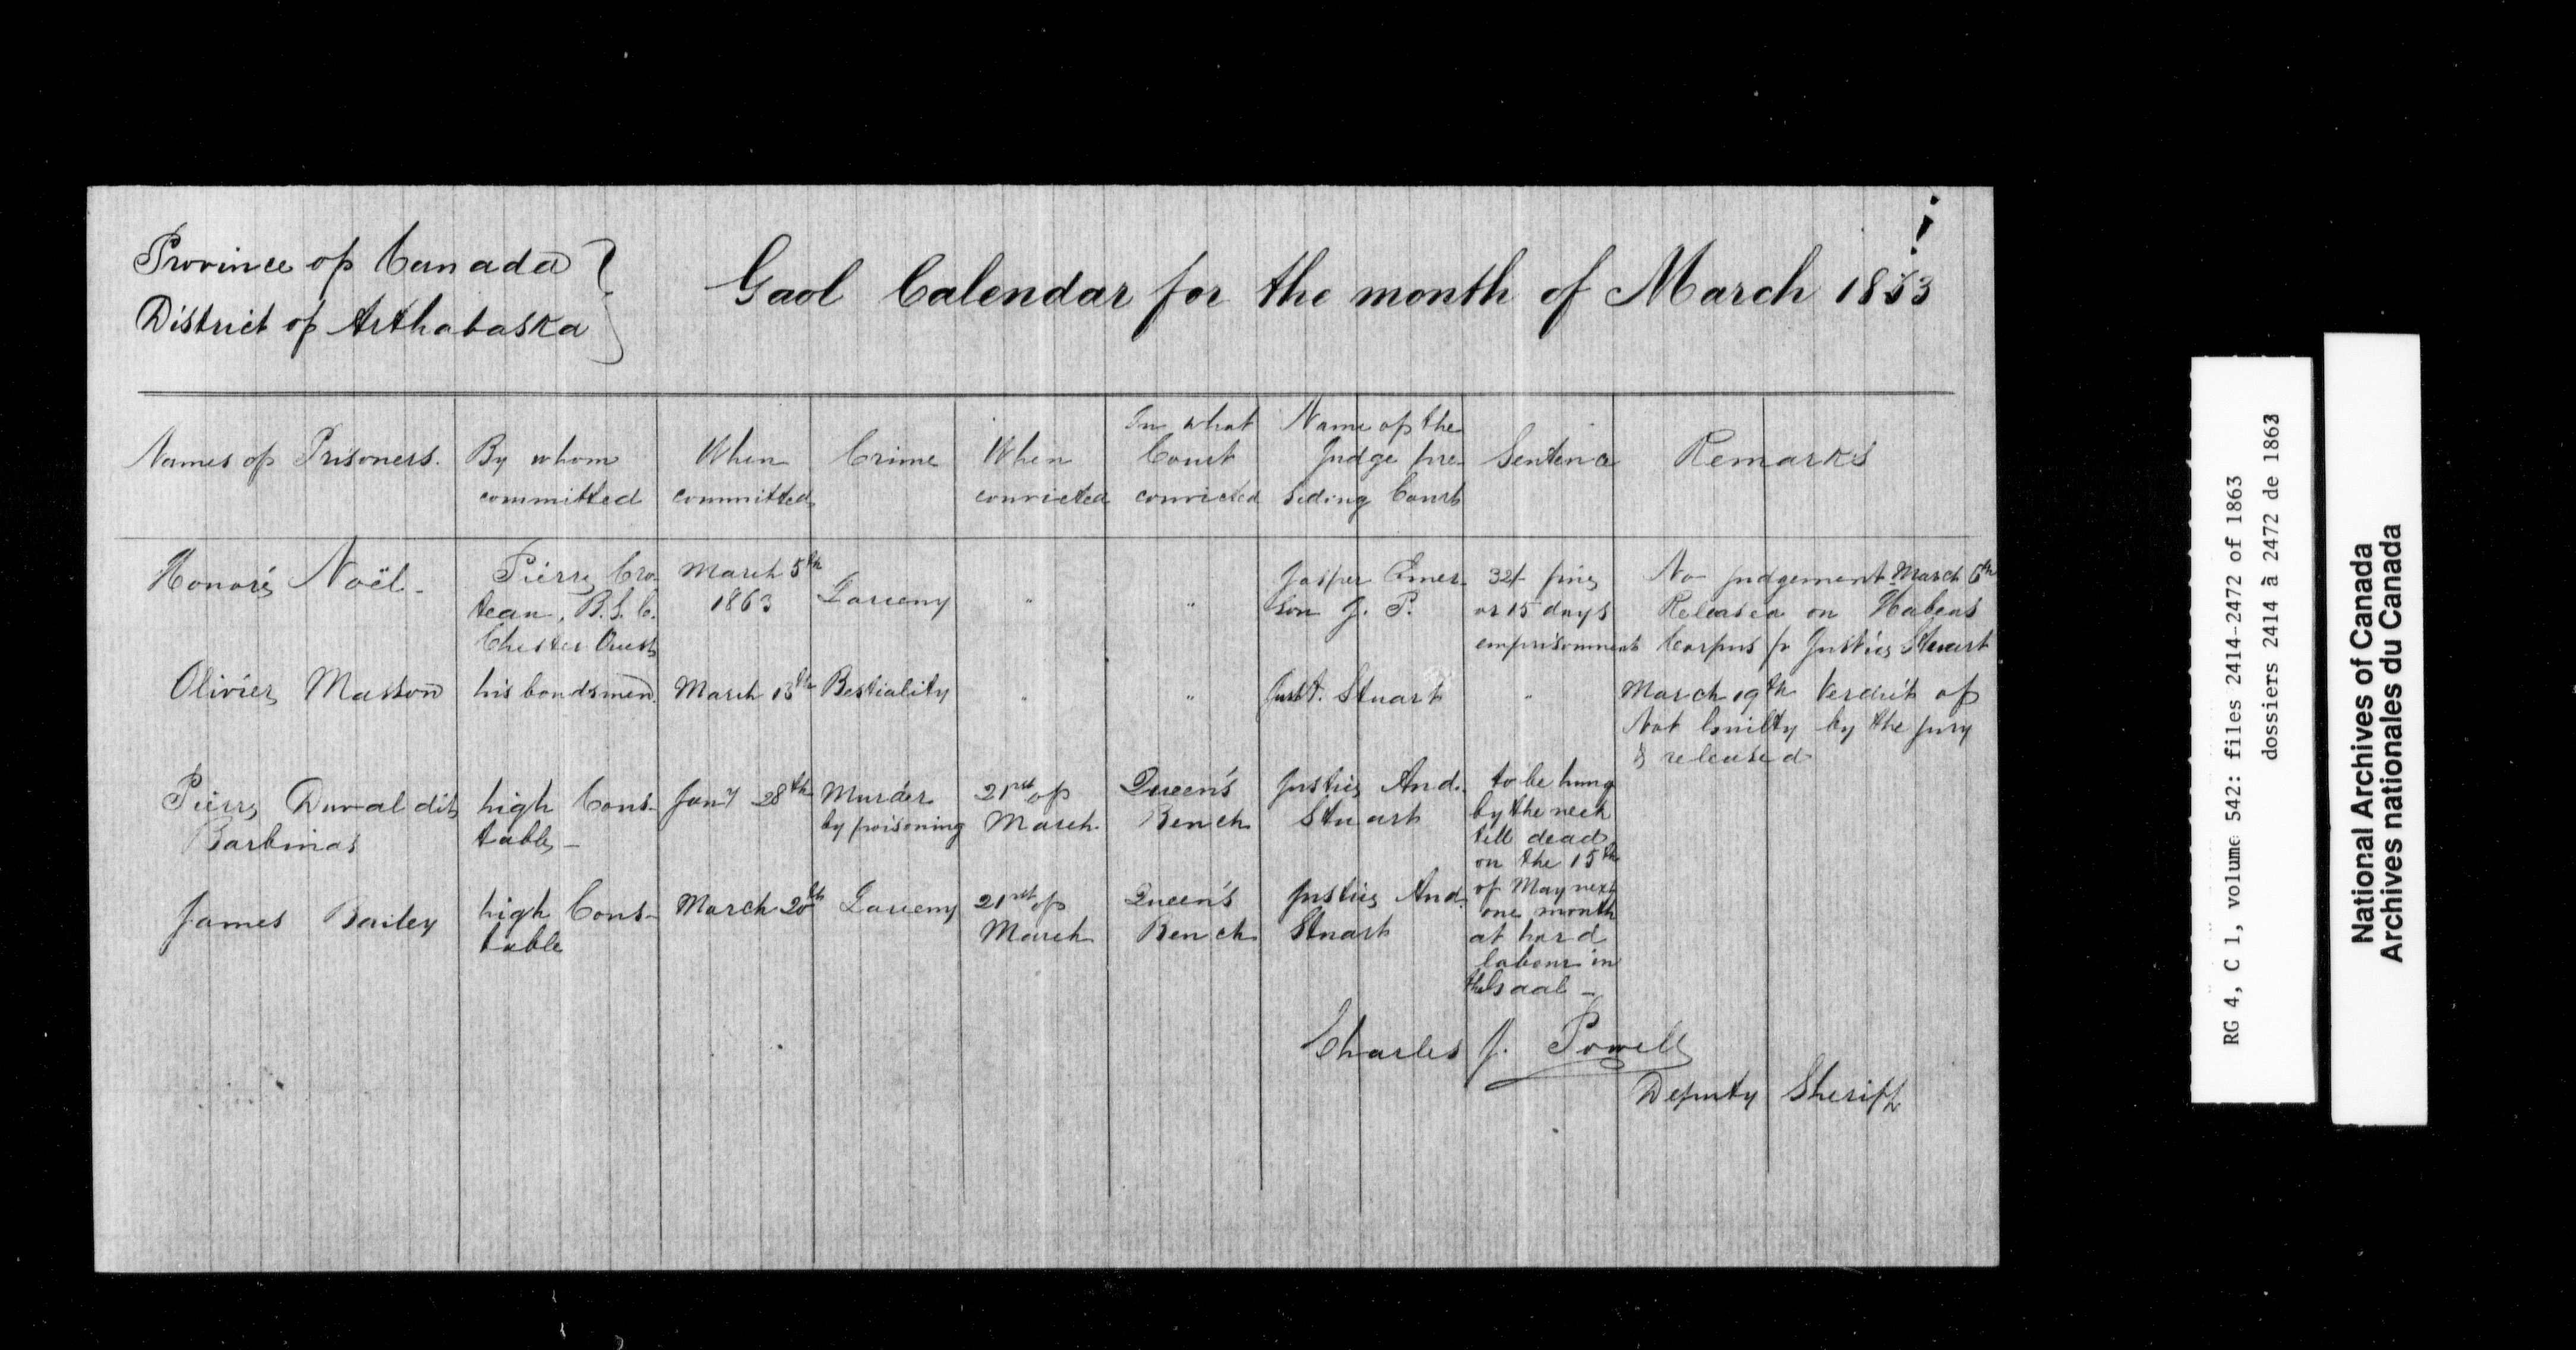 Province of Canada
District of Arthabaska
Gaol Calendar for the month of March 1863
Names of Prisoners.
By whom
committed
When
committed
Crime
When
convicted
In what
Court
convicted
Name of the
Judge pre-
siding Court
Sentence
Remarks
Honoré Noël.
Pierre Cro-
teau, B.S.C.
Chester Ouest
March 5th
1863
Larceny
"
"
Jasper Emer-
son J. P.
32/- fine
or 15 days
emprisonment
No judgement March 6th
Released on Habeas
Corpus pr Justice Stuart
Olivier Masson
his bondsmen.
March 13th
Bestiality
"
"
Just. Stuart
"
March 19th Verdict of
Not Guilty by the jury
& released
Pierre Duval dit
Barbinas
high Cons-
table -
Jany 28th
Murder
by poisoning
21rst of
March
Queen's
Bench
Justice And.
Stuart
to be hung
by the neck
till dead
on the 15th
of May next
James Bailey
high Cons-
table
March 20th
Larceny
21rst of
March
Queen's
Bench
Justice And.
Stuart
one month
at hard
labour in
the Gaal -
Charles J. Powell
Deputy Sheriff
RG 4, C 1, volume 542: files 2414-2472 of 1863
dossiers 2414 à 2472 de 1863
National Archives of Canada
Archives nationales du Canada